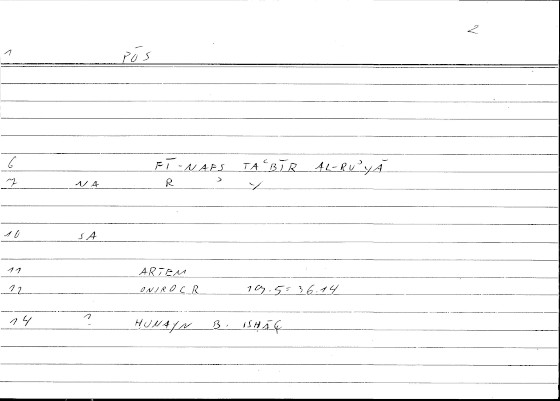 2
1 PŌS
6 FĪ-NAFS TAʿBĪR AL-RUʾYĀ
7 NA R ʾ Y
10 SA
11 ARTEM
12 ONIROCR 109.5 = 36.14
14 ? HUNAYN B. ISHĀQ